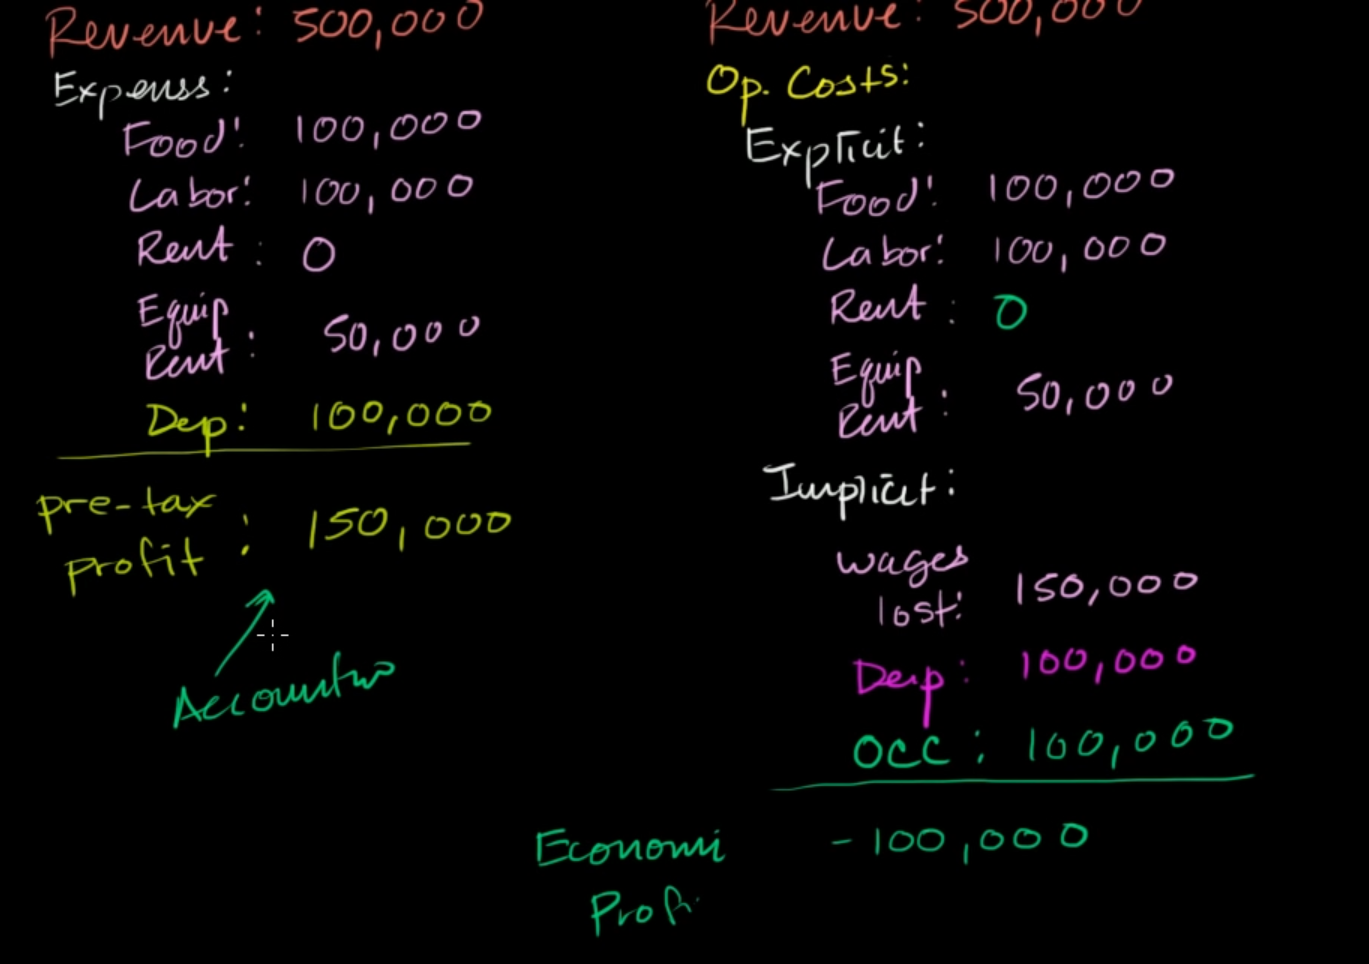 Revenue: 500,000
Expenss:
Food: 100,000
Labor: 100,000
Rent: 0
Equip
Rent: 50,000
Dep: 100,000
pre-tax
profit: 150,000
Revenue: 500,000
Op. Costs:
Explicit:
Food: 100,000
Labor: 100,000
Rent: 0
Equip
Rent: 50,000
Implicit:
wages
lost: 150,000
Dep: 100,000
OCC: 100,000
Economi -100,000
Profi